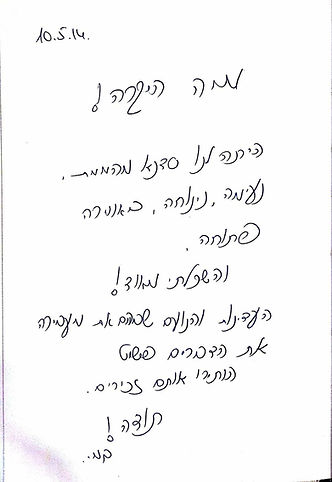 10.5.14.
היקרה!
היתה לנו סדנא מהממת,
נעימה, נינוחה, באוירה
פתוחה.
והשכלתי מאוד!
העדינות והנועם שבהם את מעבירה
את הדברים פשוט
הותירו אותם זכירים.
תודה!